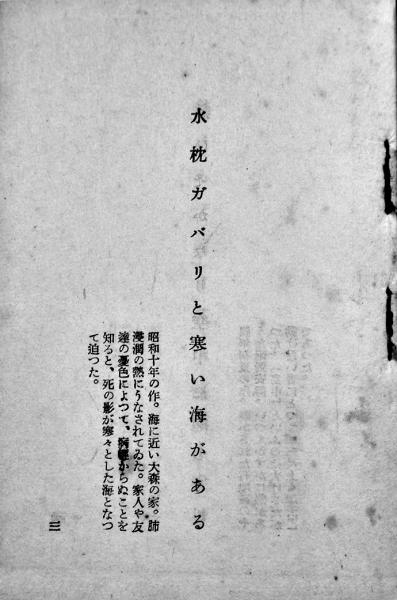 水枕ガバリと寒い海がある
昭和十年の作。海に近い大森の家。肺
浸潤の熱にうなされてゐた。家人や友
達の憂色によつて、病軽からぬことを
知ると、死の影が寒々とした海となつ
て迫つた。
三